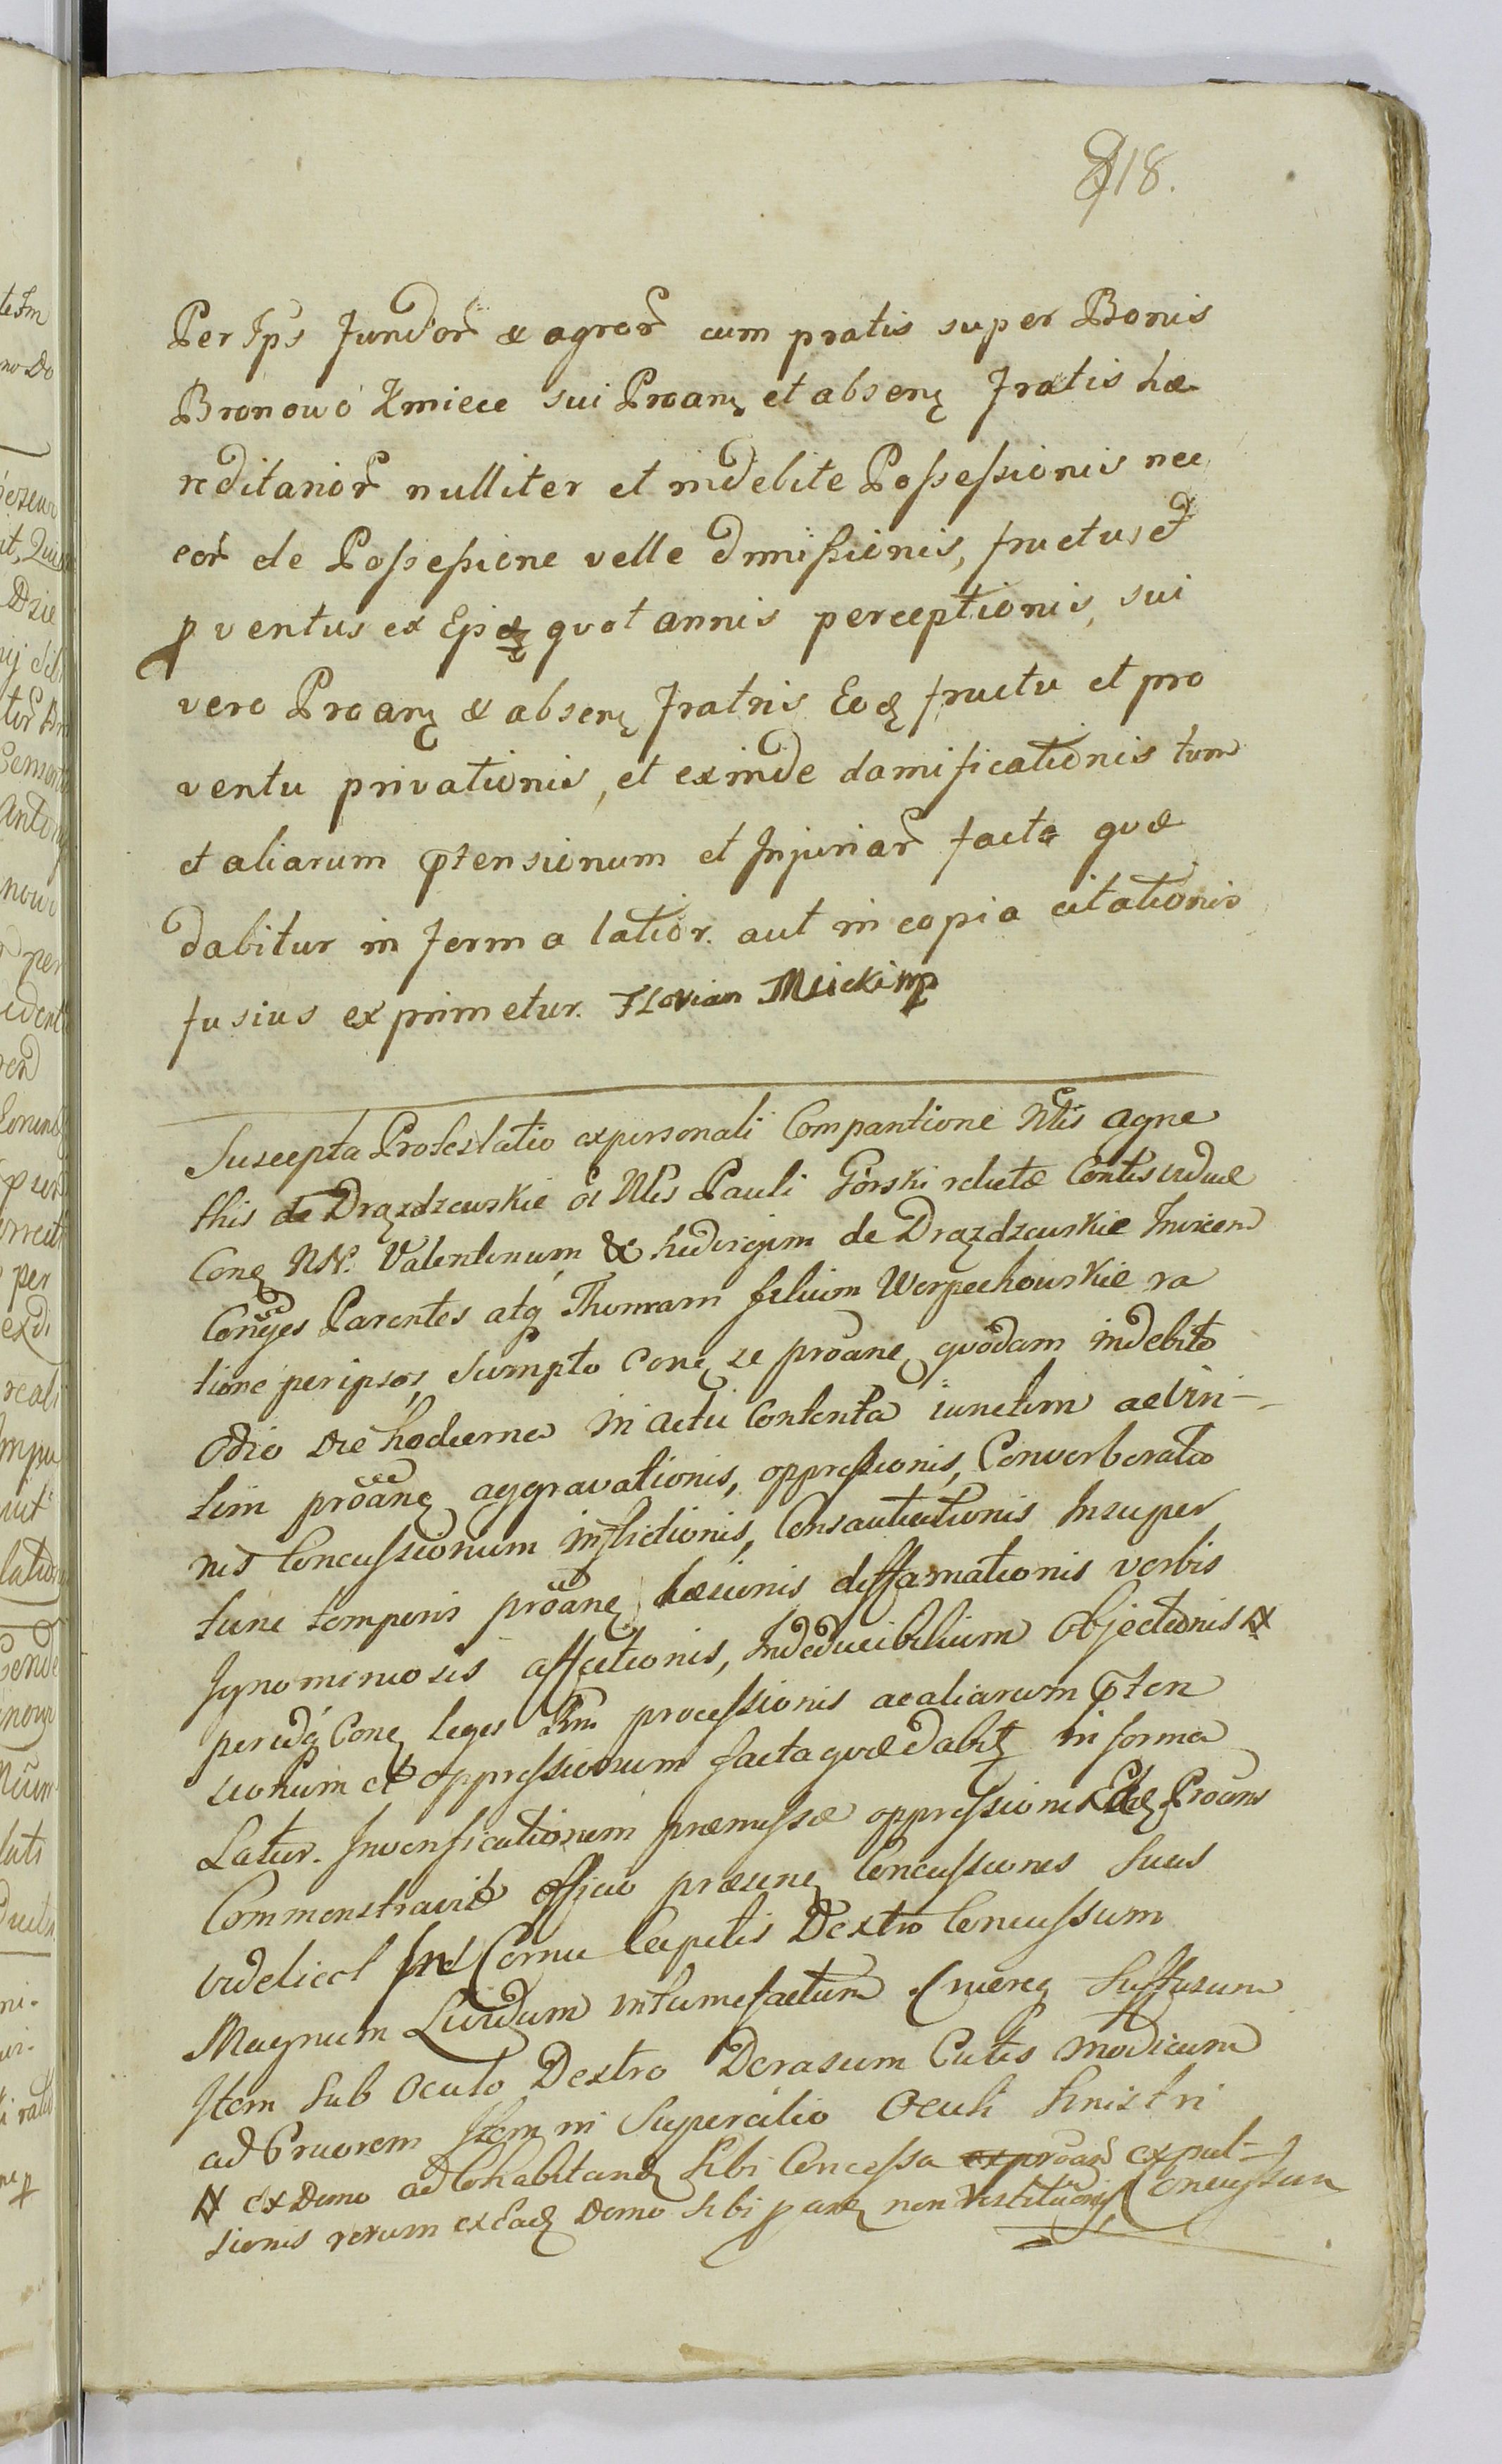 818.
Per Ips fundor & agror cum pratis super Bonis
Bronowo Kmiece sui Proanq et absenq Fratris hæ
reditarior nulliter et indebite Possessionis nec
eor de Possessione velle dimissionis, fructus et
pventus ex Ejsdq quot annis perceptionis, sui
vero Proanq & absenq Fratris Eodq fructu et pro
ventu privationis, et exinde damificationis tum
et aliarum ptensionum et Injuriar facta quæ
dabitur in forma latior. aut in copia citationis
fusius exprimetur. Florian Msicki mp
Suscepta Protestatio ex personali Comparitione Nlis Agne
this de Drązdzewskie ol Nlis Pauli Gorski relictæ Contis viduæ
Conq NN. Valentinum & hedvigim de Drązdzewskie Invicem
Conges Parentes atq Thomam filium Werpechowskie ra
tione per ipsos, sumpto conq se proane quodam indebito
Odio die hodierna in actu Contenta iunctim ac viri-
tim proanq aggravationis, oppressionis, Converberatio
nis Concussionum inflictionis, Consauciationis Insuper
tunc temporis proanq læsionis diffamationis verbis
Ignominiosis affectionis, Indeducibilium Objectionis
peridq Conq leges Rni processionis ac aliarum pten
sionum et oppressionum facta quæ dabitq in forma
Latior. In verificationem præmissæ oppressionis Eadq Proans
Commonstravit officio præsenq Concussiones suas
videlicet In Cornu Capitis Dextro Concussum
Magnum Lividum intumefactum cruoreq suffusum
Item sub Oculo Dextro Derasum Cutis modicum
ad Cruorem Item in Supercilio Oculi Sinistri
Concussum
ex Domo ad Cohabitanq sibi Concessa ex proan expul-
sionis rerum ex Eadq Domo sibi panq non restitutionis